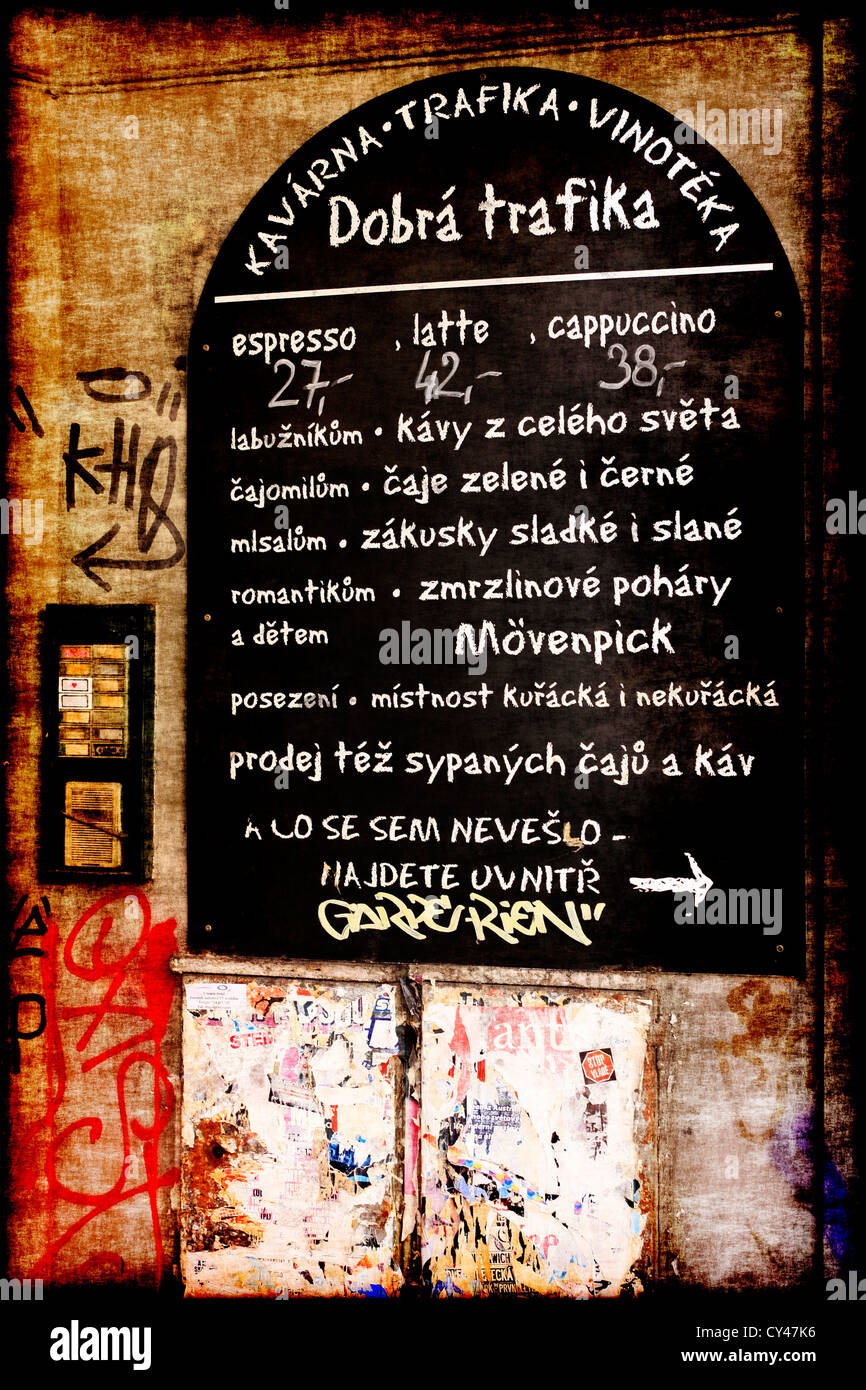 KAVÁRNA · TRAFIKA · VINOTÉKA
Dobrá trafika
espresso , latte , cappuccino
27,- 42,- 38,-
labužníkům · kávy z celého světa
čajomilům · čaje zelené i černé
mlsalům · zákusky sladké i slané
romantikům · zmrzlinové poháry
a dětem Mövenpick
posezení · místnost kuřácká i nekuřácká
prodej též sypaných čajů a káv
A CO SE SEM NEVEŠLO -
NAJDETE UVNITŘ
GARPE-RIEN"
KH
STOP
alamy
Image ID: CY47K6
www.alamy.com